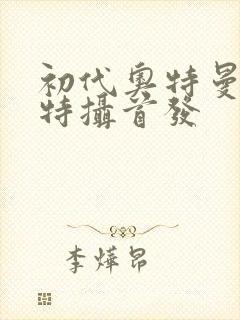 初代奥特曼
特攝首發
李燁昂